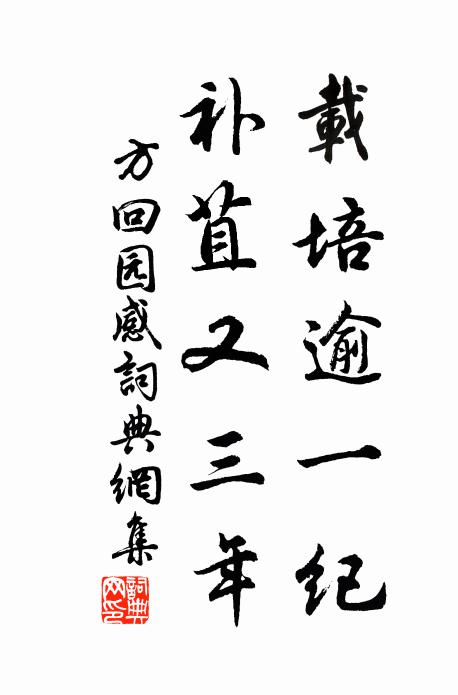 載培逾一紀
补苴又三年
方回园感詞典網集
詞典網印